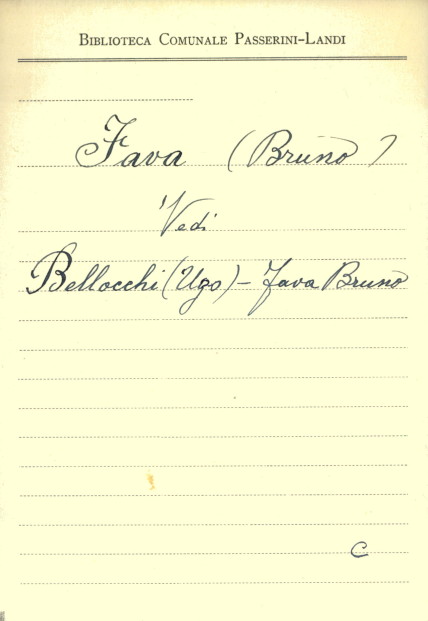 Biblioteca Comunale Passerini-Landi
Fava (Bruno)
Vedi
Bellocchi (Ugo) - Fava Bruno
C